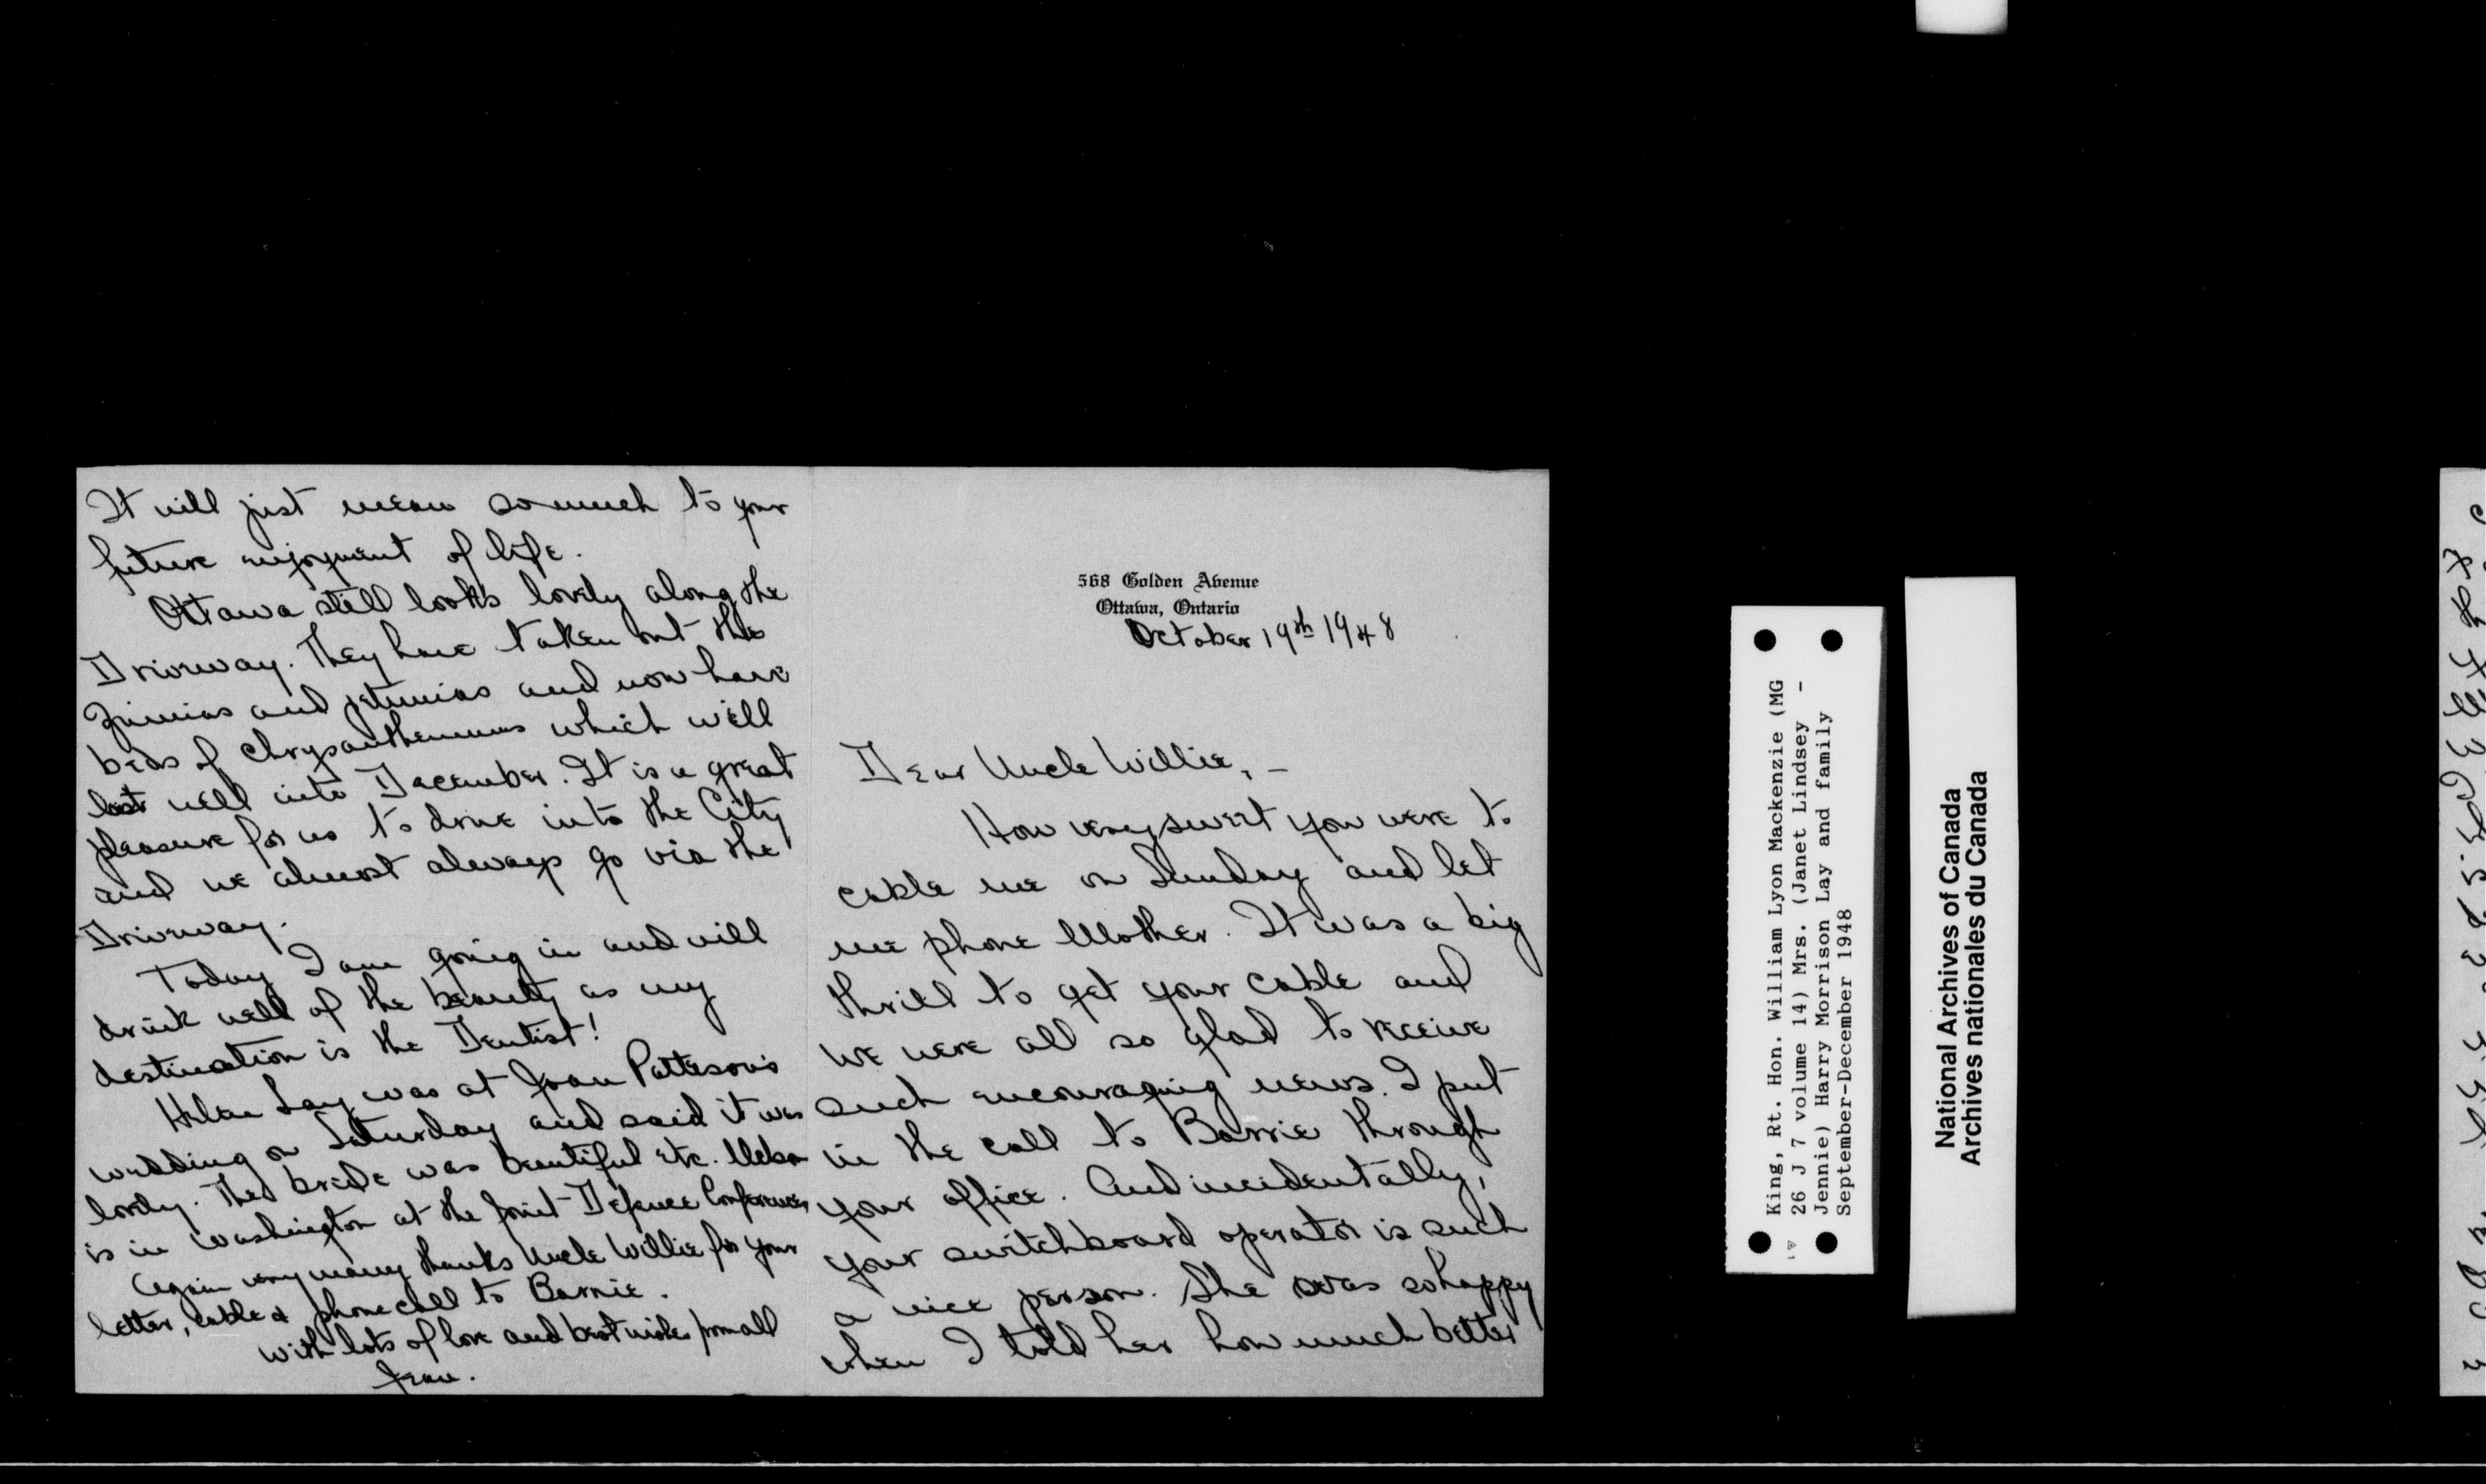 568 Golden Avenue
Ottawa, Ontario
October 19th 1948
Dear Uncle Willie, –
How very sweet you were to
cable me on Sunday and let
me phone Mother. It was a big
thrill to get your cable and
we were all so glad to receive
such encouraging news. I put
in the call to Barrie through
your office. And incidentally,
your switchboard operator is such
a nice person. She was so happy
when I told her how much better
It will just mean so much to your
future enjoyment of life.
Ottawa still looks lovely along the
Driveway. They have taken out the
zinnias and petunias and now have
beds of chrysanthemums which will
last well into December. It is a great
pleasure for us to drive into the City
and we almost always go via the
Driveway.
Today I am going in and will
drink well of the beauty as my
destination is the Dentist!
Helen Lay was at Joan Patteson's
wedding on Saturday and said it was
lovely. The bride was beautiful etc.
is in Washington at the Joint Defence Conference
Again very many thanks Uncle Willie for your
letter, cable & phone call to Barrie.
With lots of love and best wishes from all
Jean.
King, Rt. Hon. William Lyon Mackenzie (MG
26 J 7 volume 14) Mrs. (Janet Lindsey -
Jennie) Harry Morrison Lay and family
September-December 1948
National Archives of Canada
Archives nationales du Canada